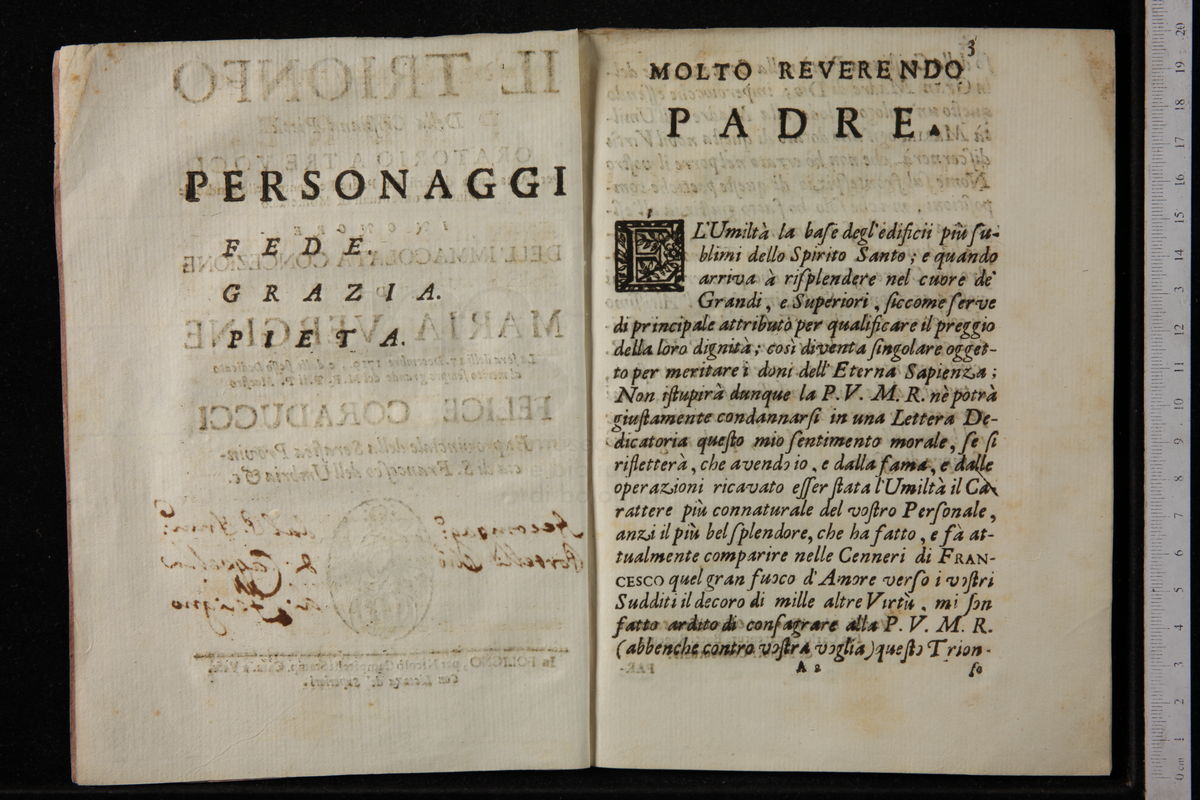 PERSONAGGI
FEDE.
GRAZIA.
PIETA.
3
MOLTO REVERENDO
PADRE.
EL'Umiltà la base degl'edificii più su-
blimi dello Spirito Santo; e quando
arriva à risplendere nel cuore de'
Grandi, e Superiori, siccome serve
di principale attributo per qualificare il preggio
della loro dignità; così diventa singolare ogget-
to per meritare i doni dell'Eterna Sapienza;
Non istupirà dunque la P. V. M. R. nè potrà
giustamente condannarsi in una Lettera De-
dicatoria questo mio sentimento morale, se si
rifletterà, che avendo io, e dalla fama, e dalle
operazioni ricavato esser stata l'Umiltà il Ca-
rattere più connaturale del vostro Personale,
anzi il più bel splendore, che ha fatto, e fà at-
tualmente comparire nelle Cenneri di FRAN-
CESCO quel gran fuoco d'Amore verso i vostri
Sudditi il decoro di mille altre Virtù, mi son
fatto ardito di consagrare alla P. V. M. R.
(abbenche contro vostra voglia) questo Trion-
A 2 fo